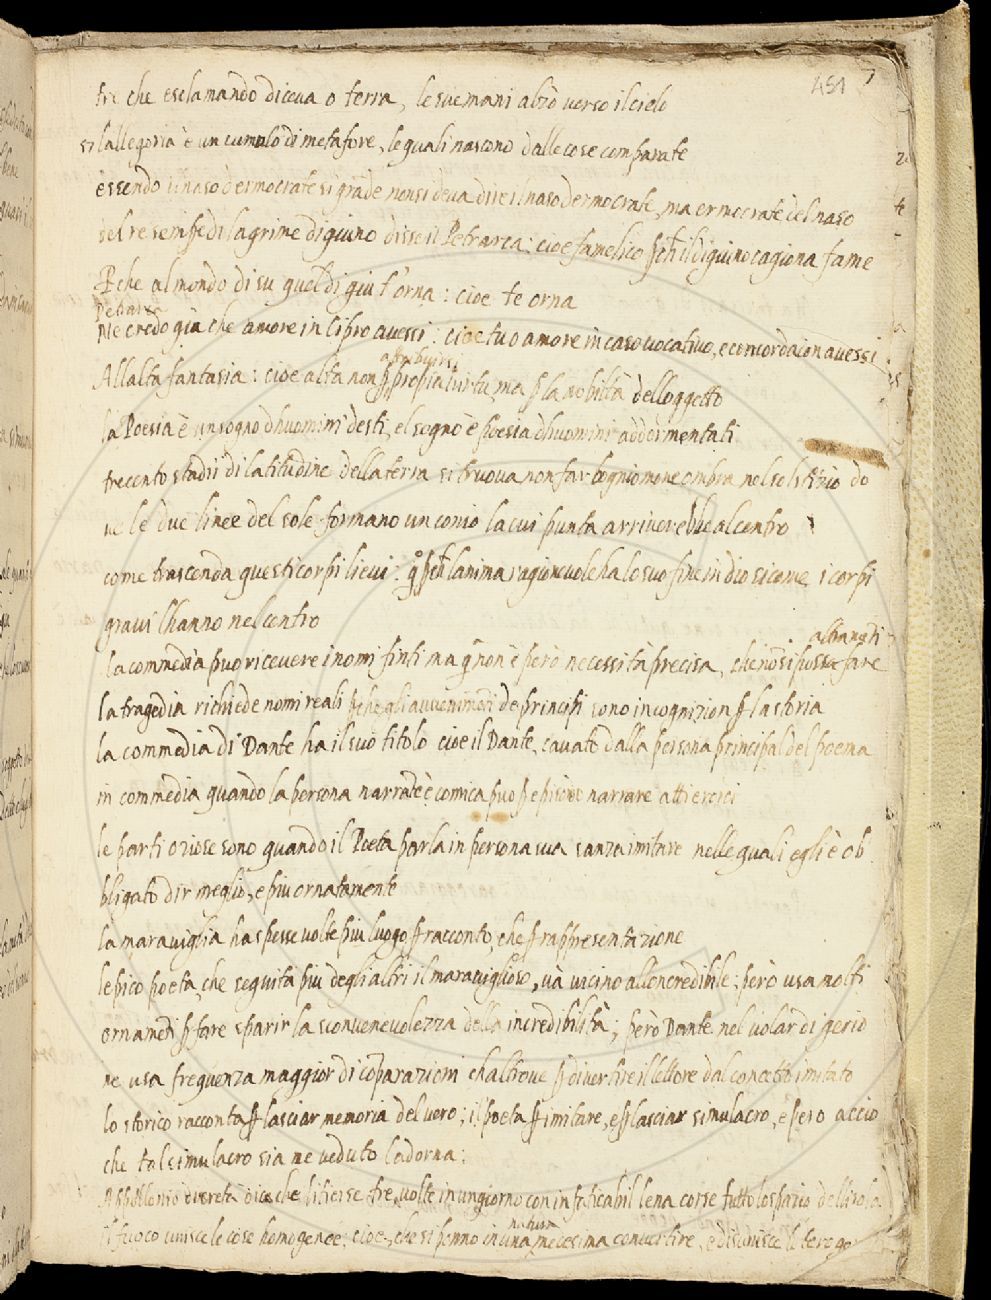 451 7
tre che esclamando diceua o terra, le sue mani alzò uerso il cielo
si lallegoria è un cumulo di metafore, le quali nascono dalle cose comparate
essendo il naso dermocrate si grãde non si deua dire il naso dermocrate, ma ermocrate del naso
sel re semife di lagrime digiuno disse il Petrarca: cioè famelico p̱ch il digiuno cagiona fame
P̱che al mondo di su quel di giu t'orna: cioe te orna
Petrarca
Ne credo già che amore in cipro auessi: cioe tu o amore in caso uocativo, e concorda con auessi
attribuirsi
Allalta fantasia: cioè alta non p̱ propia uirtu, ma p̱ la nobiltà delloggetto
la Poesia è un sogno dhuomini desti, el sogno è poesia dhuomini addormentati
trecento stadii di latitudine della terra si truoua non far lo gniomone ombra nel solstizio do
ue le due linee del sole formano un conio la cui punta arriuerebbe al centro
come trascenda questi corpi lieui: q̱ p̱ch lanima ragioneuole ha lo suo fine in dio sicome i corpi
graui lhanno nel centro
altramẽti
la commedia puo riceuere i nomi finti ma q̃ non è però necessità precisa, che nõ si possa fare
la tragedia richiede nomi reali p̱che gli auuenimẽti de principi sono in cognizion p̱ la storia
la commedia di Dante ha il suo titolo cioè il Dante, cauato dalla persona principal del poema
in commedia quando la persona narrate è comica puo p̱ episodio narrare atti eroici
le parti oziose sono quando il Poeta parla in persona sua sanza imitare nelle quali egli è ob
bligato dir meglio, e piu ornatamente
la marauiglia ha spesse uolte piu luogo p̱ racconto, che p̱ rappresentazione
lepico poeta, che seguita piu degli altri il marauiglioso, uà uicino allencredibile; però usa molti
ornamẽti p̱ fare sparir la sconueneuolezza della incredibilità; però Dante nel uolar di gerio
ne usa frequenza maggior di cõparazioni chaltroue p̱ diuertire il lettore dal concetto imitato
lo storico racconta p̱ lasciar memoria del uero; il poeta p̱ imitare, e p̱ lasciar simulacro, e però accio
che tal simulacro sia me ueduto ladorna:
Appollonio di creta dice che li fierse tre uolte in un giorno con infaticabil lena corse tutto lo spazio dellisola
natura
il fuoco unisce le cose homogenee, cioè, che si ponno in una medesima conuertire, e disunisce leterogẽ